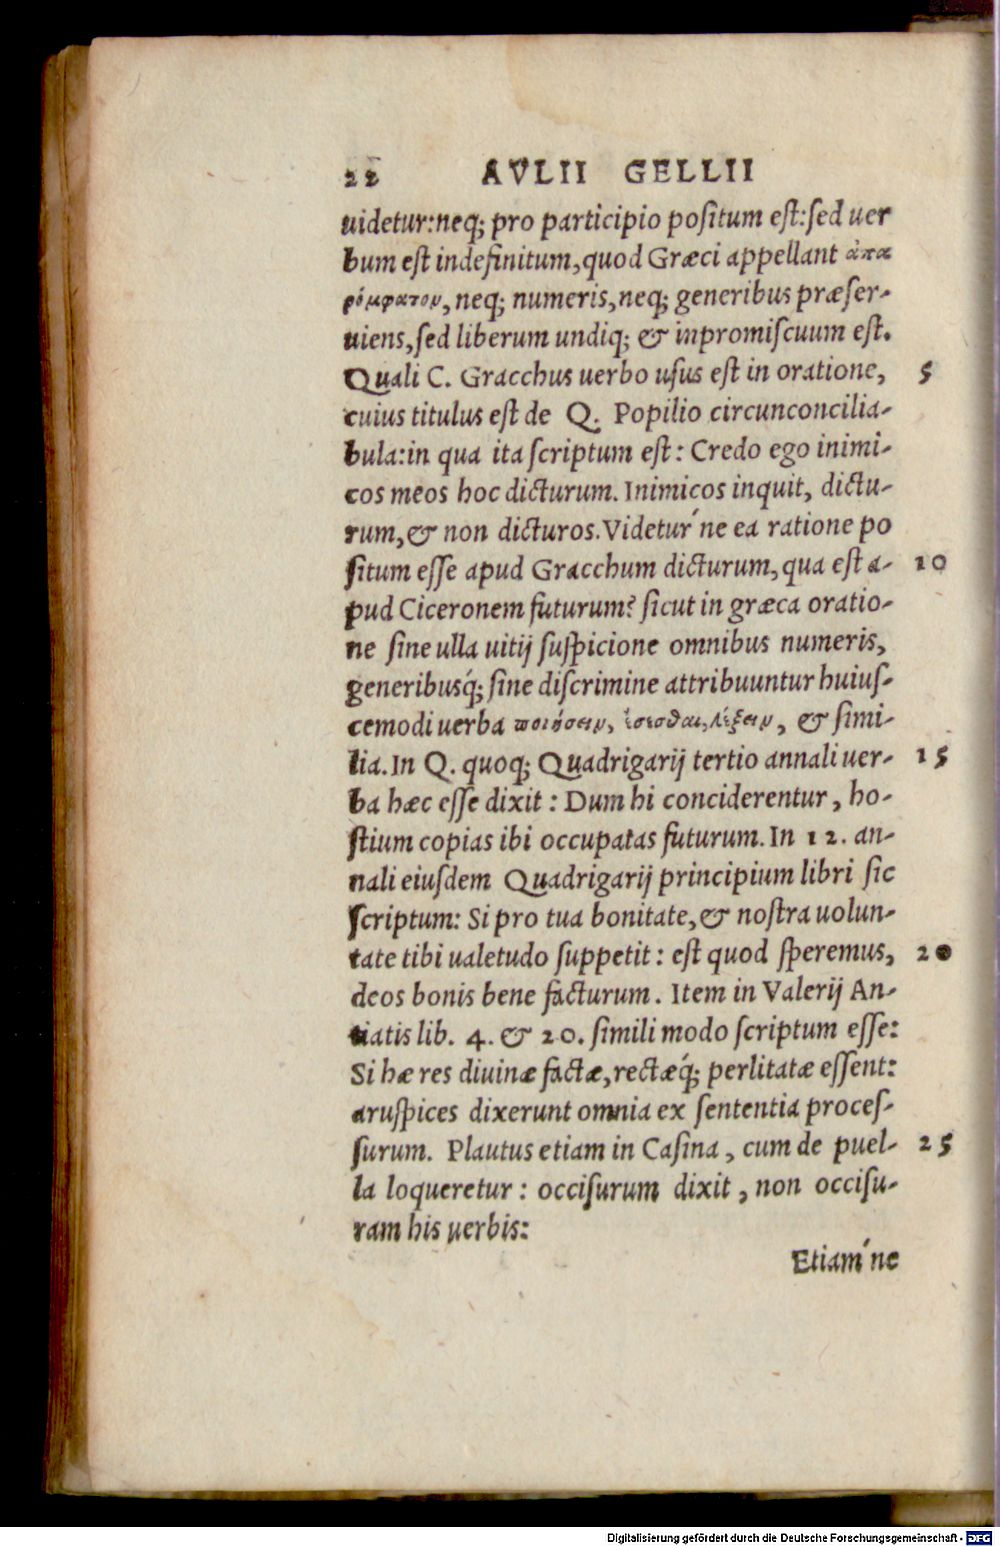 22 AVLII GELLII
uidetur:neq; pro participio positum est:sed uer
bum est indefinitum,quod Græci appellant ἀπα
ρέμφατον, neq; numeris,neq; generibus præser-
uiens,sed liberum undiq; & inpromiscuum est.
Quali C. Gracchus uerbo usus est in oratione, 5
cuius titulus est de Q. Popilio circunconcilia-
bula:in qua ita scriptum est: Credo ego inimi-
cos meos hoc dicturum. Inimicos inquit, dictu-
rum,& non dicturos.Videtur'ne ea ratione po
situm esse apud Gracchum dicturum,qua est a- 10
pud Ciceronem futurum? sicut in græca oratio-
ne sine ulla uitij suspicione omnibus numeris,
generibusq́; sine discrimine attribuuntur huius-
cemodi uerba ποιήσειν, ἔσεσθαι, λέξειν, & simi-
lia.In Q. quoq; Quadrigarij tertio annali uer- 15
ba hæc esse dixit: Dum hi conciderentur, ho-
stium copias ibi occupatas futurum. In 12. an-
nali eiusdem Quadrigarij principium libri sic
scriptum: Si pro tua bonitate,& nostra uolun-
tate tibi ualetudo suppetit: est quod speremus, 20
deos bonis bene facturum. Item in Valerij An-
tiatis lib. 4. & 20. simili modo scriptum esse:
Si hæ res diuinæ factæ,rectæq́; perlitatæ essent:
aruspices dixerunt omnia ex sententia proces-
surum. Plautus etiam in Casina, cum de puel- 25
la loqueretur: occisurum dixit, non occisu-
ram his uerbis:
Etiam'ne
Digitalisierung gefördert durch die Deutsche Forschungsgemeinschaft - DFG